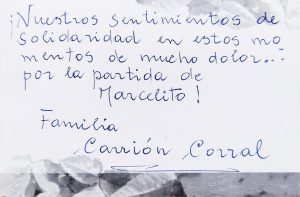 ¡Nuestros sentimientos de
solidaridad en estos mo
mentos de mucho dolor...
por la partida de
Marcelito!
Familia
Carrión Corral